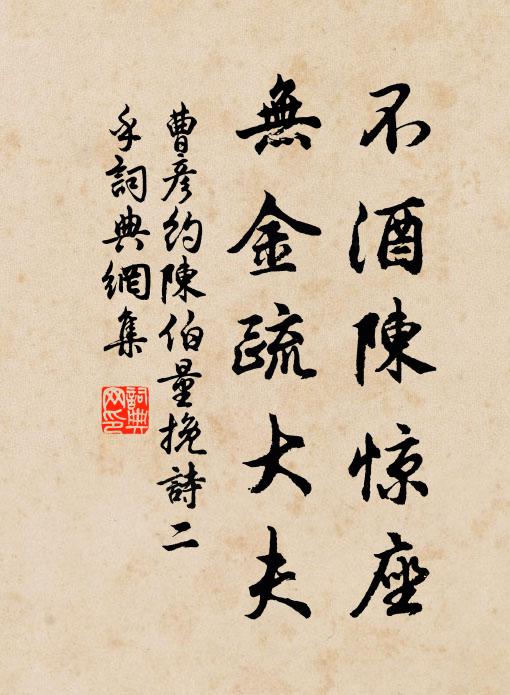 不酒陳惊座
無金疏大夫
曹彦約陳伯量挽詩二
手詞典網集
詞典网印